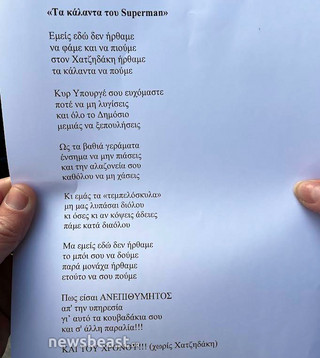 «Τα κάλαντα του Superman»
Εμείς εδώ δεν ήρθαμε
να φάμε και να πιούμε
στον Χατζηδάκη ήρθαμε
τα κάλαντα να πούμε
Κυρ Υπουργέ σου ευχόμαστε
ποτέ να μη λυγίσεις
και όλο το Δημόσιο
μεμιάς να ξεπουλήσεις
Ως τα βαθιά γεράματα
ένσημα να μην πιάσεις
και την αλαζονεία σου
καθόλου να μη χάσεις
Κι εμάς τα «τεμπελόσκυλα»
μη μας λυπάσαι διόλου
κι όσες κι αν κόψεις άδειες
πάμε κατά διαόλου
Μα εμείς εδώ δεν ήρθαμε
το μπόι σου να δούμε
παρά μονάχα ήρθαμε
ετούτο να σου πούμε
Πως είσαι ΑΝΕΠΙΘΥΜΗΤΟΣ
απ' την υπηρεσία
γι' αυτό τα κουβαδάκια σου
και σ' άλλη παραλία!!!
ΚΑΙ ΤΟΥ ΧΡΟΝΟΥ!!! (χωρίς Χατζηδάκη)
newsbeast